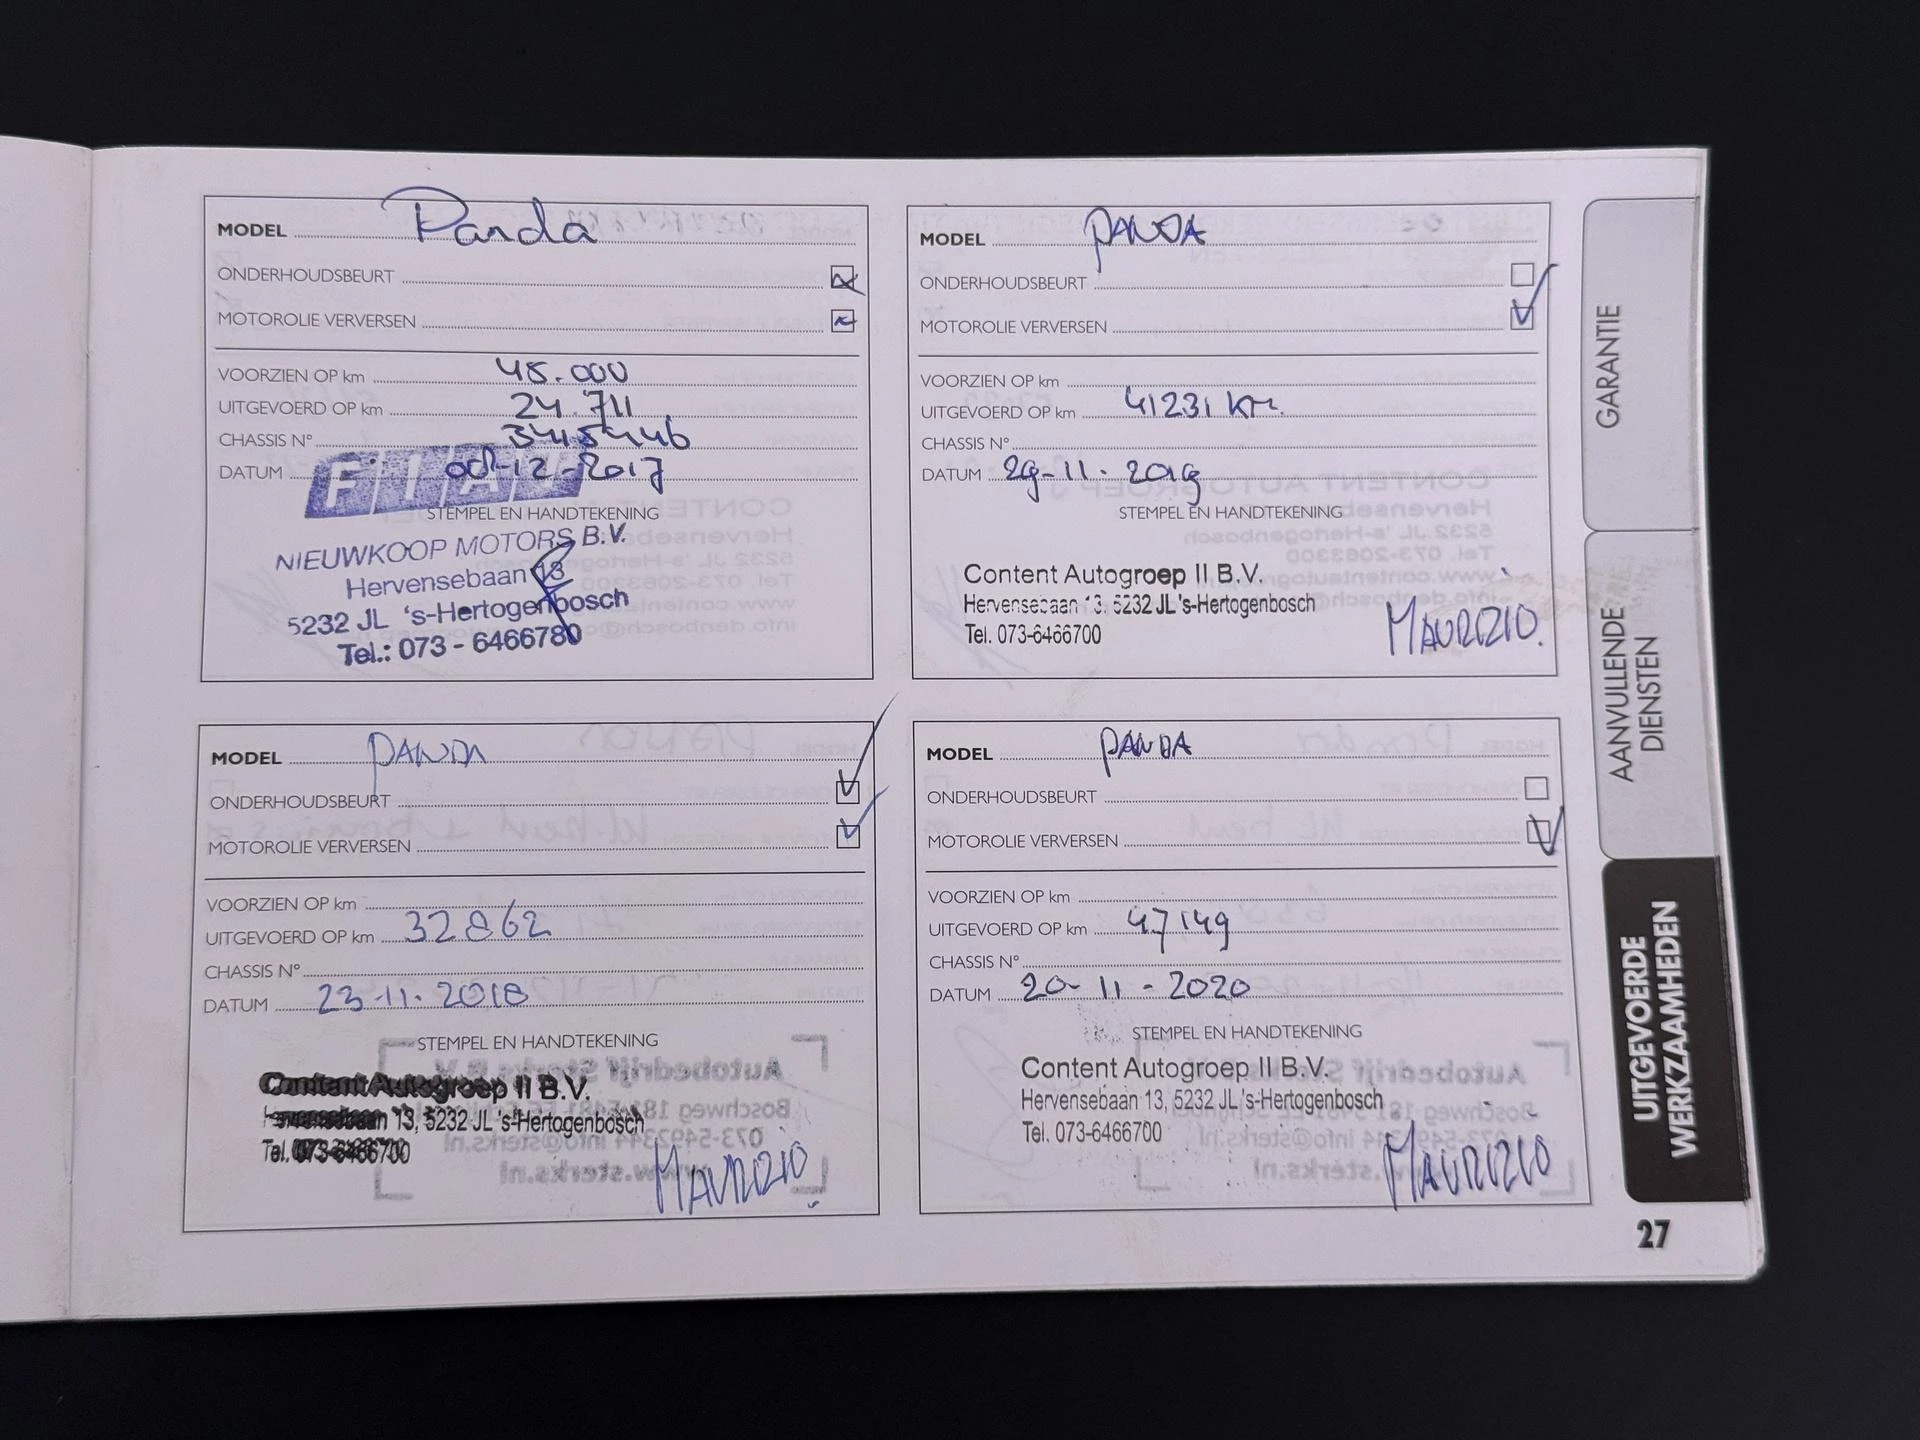 MODEL Panda
ONDERHOUDSBEURT
MOTOROLIE VERVERSEN
VOORZIEN OP km 45.000
UITGEVOERD OP km 24.711
CHASSIS N° 3415446
DATUM 12-2017
FIAT
STEMPEL EN HANDTEKENING
NIEUWKOOP MOTORS B.V.
Hervensebaan 13
5232 JL 's-Hertogenbosch
Tel.: 073 - 6466780
MODEL PANDA
ONDERHOUDSBEURT
MOTOROLIE VERVERSEN
VOORZIEN OP km
UITGEVOERD OP km 41231 km.
CHASSIS N°
DATUM 29-11-2019
STEMPEL EN HANDTEKENING
Content Autogroep II B.V.
Hervensebaan 13, 5232 JL 's-Hertogenbosch
Tel. 073-6466700
MAURIZIO.
MODEL PANDA
ONDERHOUDSBEURT
MOTOROLIE VERVERSEN
VOORZIEN OP km
UITGEVOERD OP km 32862
CHASSIS N°
DATUM 23-11-2018
STEMPEL EN HANDTEKENING
Content Autogroep II B.V.
Hervensebaan 13, 5232 JL 's-Hertogenbosch
Tel. 073-6466700
MAURIZIO
MODEL PANDA
ONDERHOUDSBEURT
MOTOROLIE VERVERSEN
VOORZIEN OP km
UITGEVOERD OP km 47149
CHASSIS N°
DATUM 20-11-2020
STEMPEL EN HANDTEKENING
Content Autogroep II B.V.
Hervensebaan 13, 5232 JL 's-Hertogenbosch
Tel. 073-6466700
MAURIZIO
GARANTIE
AANVULLENDE
DIENSTEN
UITGEVOERDE
WERKZAAMHEDEN
27